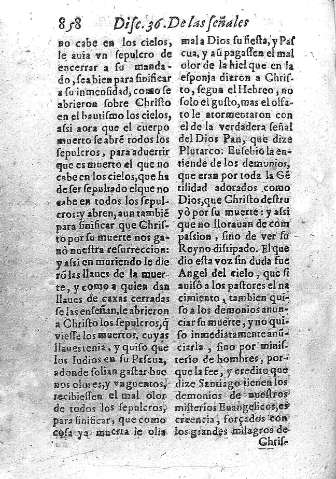 858 Disc. 36. De las señales
no cabe en los cielos,
le auia vn sepulcro de
encerrar a su manda-
do, sea bien para sinificar
a su inmensidad, como se
abrieron sobre Christo
en el bautismo los cielos,
assi aora que el cuerpo
muerto se abrē todos los
sepulcros, para aduertir
que es muerto el que no
cabe en los cielos, que ha
de ser sepultado el que no
cabe en todos los sepul-
cros: y abren, aun tambiē
para sinificar que Chris-
to por su muerte nos ga-
nò nuestra resurreccion:
y assi en muriendo le die
rō las llaues de la muer-
te, y como a quien dan
llaues de caxas cerradas
se las enseñan, le abrieron
a Christo los sepulcros, q̄
viesse los muertos, cuyas
llaues tenia, y quiso que
los Iudios en su Pascua,
adonde solian gastar bue
nos olores, y vnguentos,
recibiessen el mal olor
de todos los sepulcros,
para sinificar, que como
cosa ya muerta le olia
mal a Dios su fiesta, y Pas
cua, y aũ pagassen el mal
olor de la hiel que en la
esponja dieron a Chris-
to, segun el Hebreo, no
solo el gusto, mas el olfa-
to le atormentaron con
el de la verdadera señal
del Dios Pan, que dize
Plutarco. Eusebio la en-
tiende de los demonios,
que eran por toda la Gē
tilidad adorados como
Dios, que Christo destru
yò por su muerte: y assi
que no llorauan de com
passion, sino de ver su
Reyno dissipado. El que
dio esta voz sin duda fue
Angel del cielo, que si
auisò a los pastores el na
cimiento, tambien qui-
so a los demonios anun
ciar su muerte, y no qui
so inmediatamente anũ-
ciarla, sino por minis-
terio de hombres, por-
que la fee, y credito que
dize Santiago tienen los
demonios de nuestros
misterios Euangelicos, es
creencia, forçados con
los grandes milagros de
Chris-